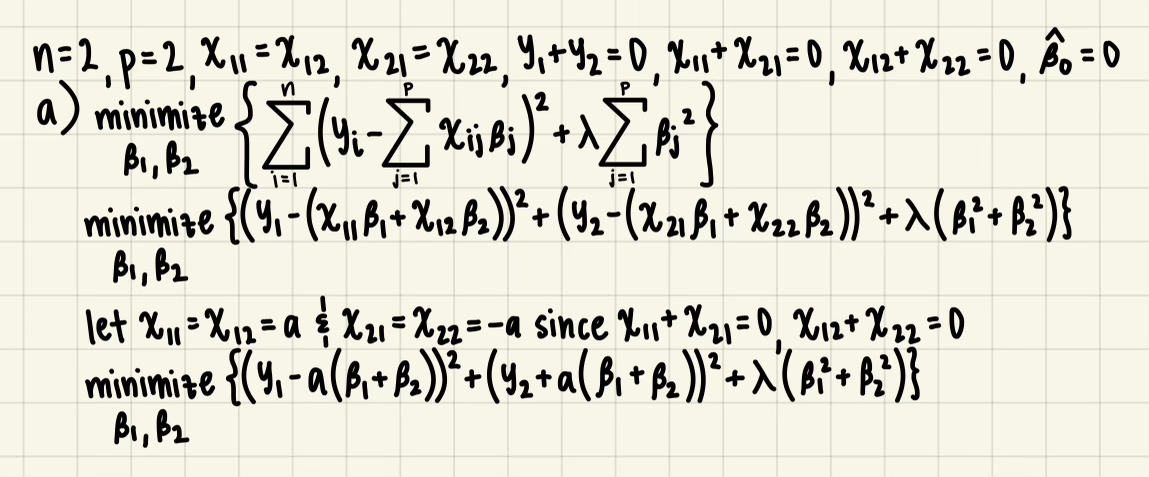 n=2, p=2, x₁₁=x₁₂, x₂₁=x₂₂, y₁+y₂=0, x₁₁+x₂₁=0, x₁₂+x₂₂=0, β̂₀=0
a) minimize β₁, β₂ { ∑ᵢ₌₁ⁿ (yᵢ - ∑ⱼ₌₁ᵖ xᵢⱼβⱼ)² + λ ∑ⱼ₌₁ᵖ βⱼ² }
minimize β₁, β₂ {(y₁-(x₁₁β₁+x₁₂β₂))²+(y₂-(x₂₁β₁+x₂₂β₂))²+λ(β₁²+β₂²)}
let x₁₁=x₁₂=a & x₂₁=x₂₂=-a since x₁₁+x₂₁=0, x₁₂+x₂₂=0
minimize β₁, β₂ {(y₁-a(β₁+β₂))²+(y₂+a(β₁+β₂))²+λ(β₁²+β₂²)}